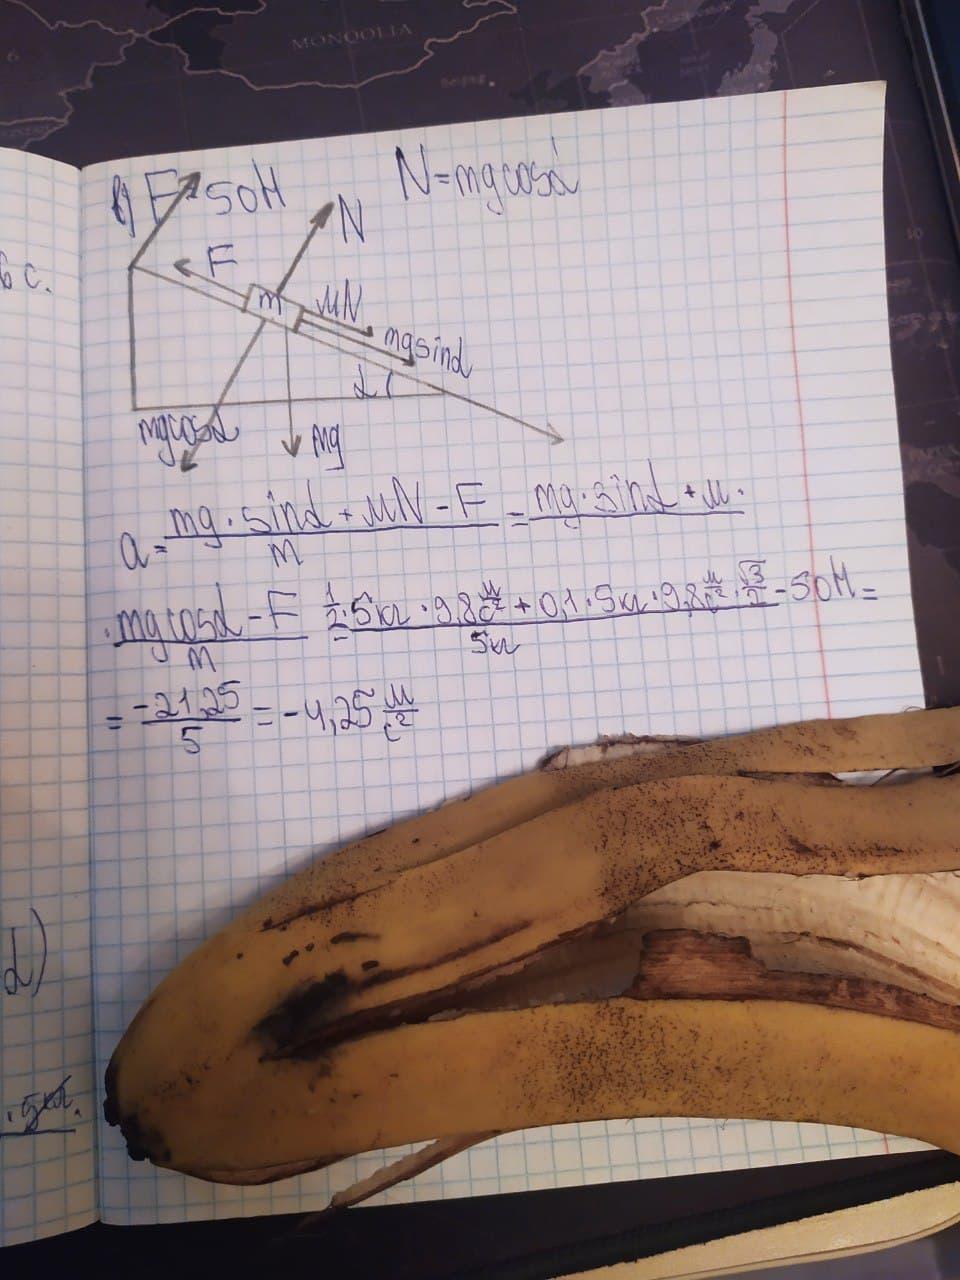 MONGOLIA
Beijing
в) F=50Н
N=mgcosα
6 с.
N
F
m
μN
mgsinα
α
mgcosα
mg
a = (mg·sinα + μN - F)/m = (mg·sinα + μ·
·mgcosα - F)/m = (1/2·5кг·9,8 м/с² + 0,1·5кг·9,8 м/с²·√3/2 - 50Н)/5кг =
= -21,25/5 = -4,25 м/с²
α)
·5кг.